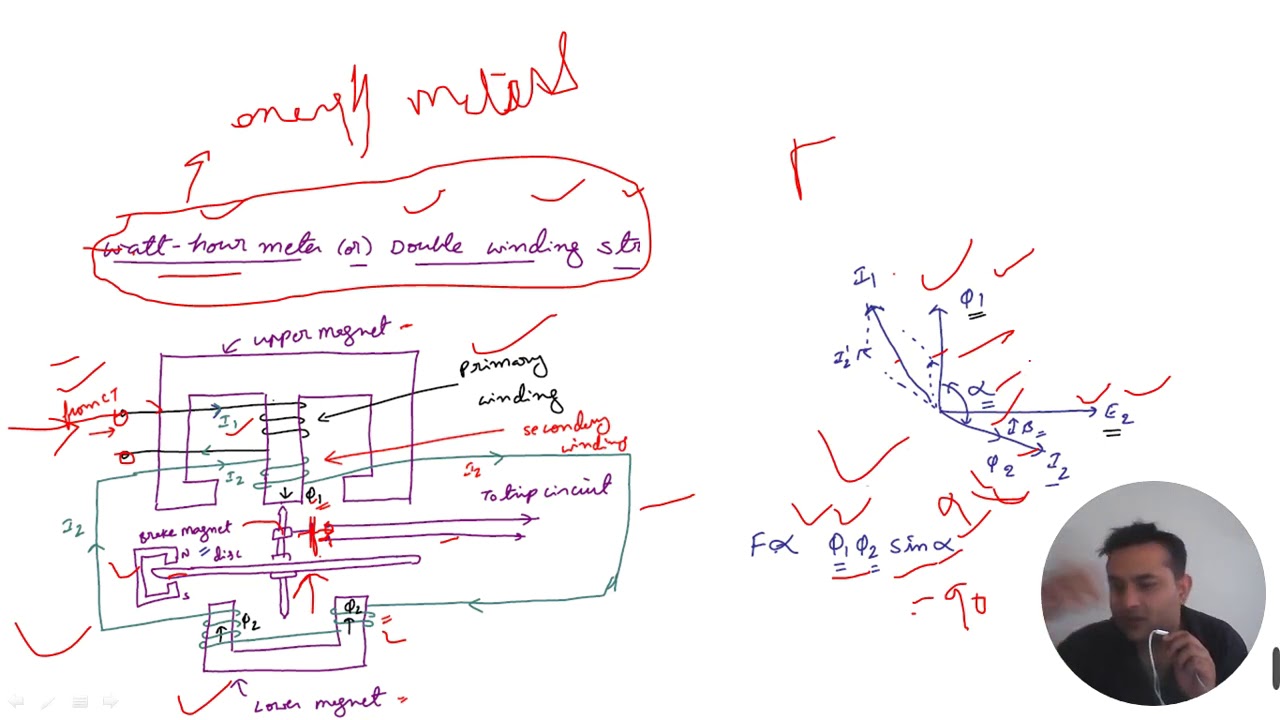 energy meters
watt-hour meter (or) Double winding str
upper magnet
primary
winding
from CT
I1
secondary
winding
I2
I2
Φ1
To trip circuit
I2
Brake magnet
N
disc
S
Φ2
Φ2
Lower magnet
I1
Φ1
I2'
α
E2
IB
Φ2
I2
F α Φ1 Φ2 sin α
= 90